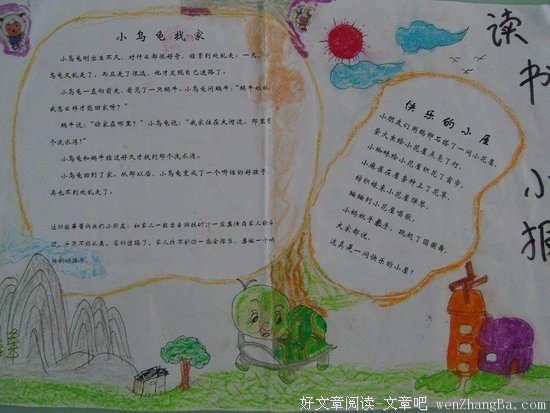 小乌龟找家
小乌龟刚出生不久，对什么都很好奇，经常到处乱走。一天，小
乌龟又乱走了，而且走了很远，他才发现自己迷路了。
小乌龟一直向前走，看见了一只蜗牛，小乌龟问蜗牛：“蜗牛姐姐，
我怎么样才能回家呀？”
蜗牛说：“你家在哪里？”小乌龟说：“我家住在大河边，那里有
个流水湾！”
小乌龟和蜗牛经过好久才找到那个流水湾。
小乌龟回到了家，从那以后，小乌龟变成了一个听话的好孩子，
再也不到处乱走了。
这则故事告诉我们小朋友：和家人一起出去游玩时，一定要待在家人的身
快乐的小屋
小朋友们用鹅卵石搭了一间小花屋。
萤火虫给小花屋点亮了灯，
小蜘蛛给小花屋织起了窗帘，
小蜜蜂在屋旁种上了花草，
纺织娘来小花屋弹琴，
蝈蝈到小花屋唱歌，
小蚂蚁手牵手，跳起了圆圈舞。
大家都说，
这真是一间快乐的小屋！
读书小报
好文章阅读-文章吧 wenZhangBa.com